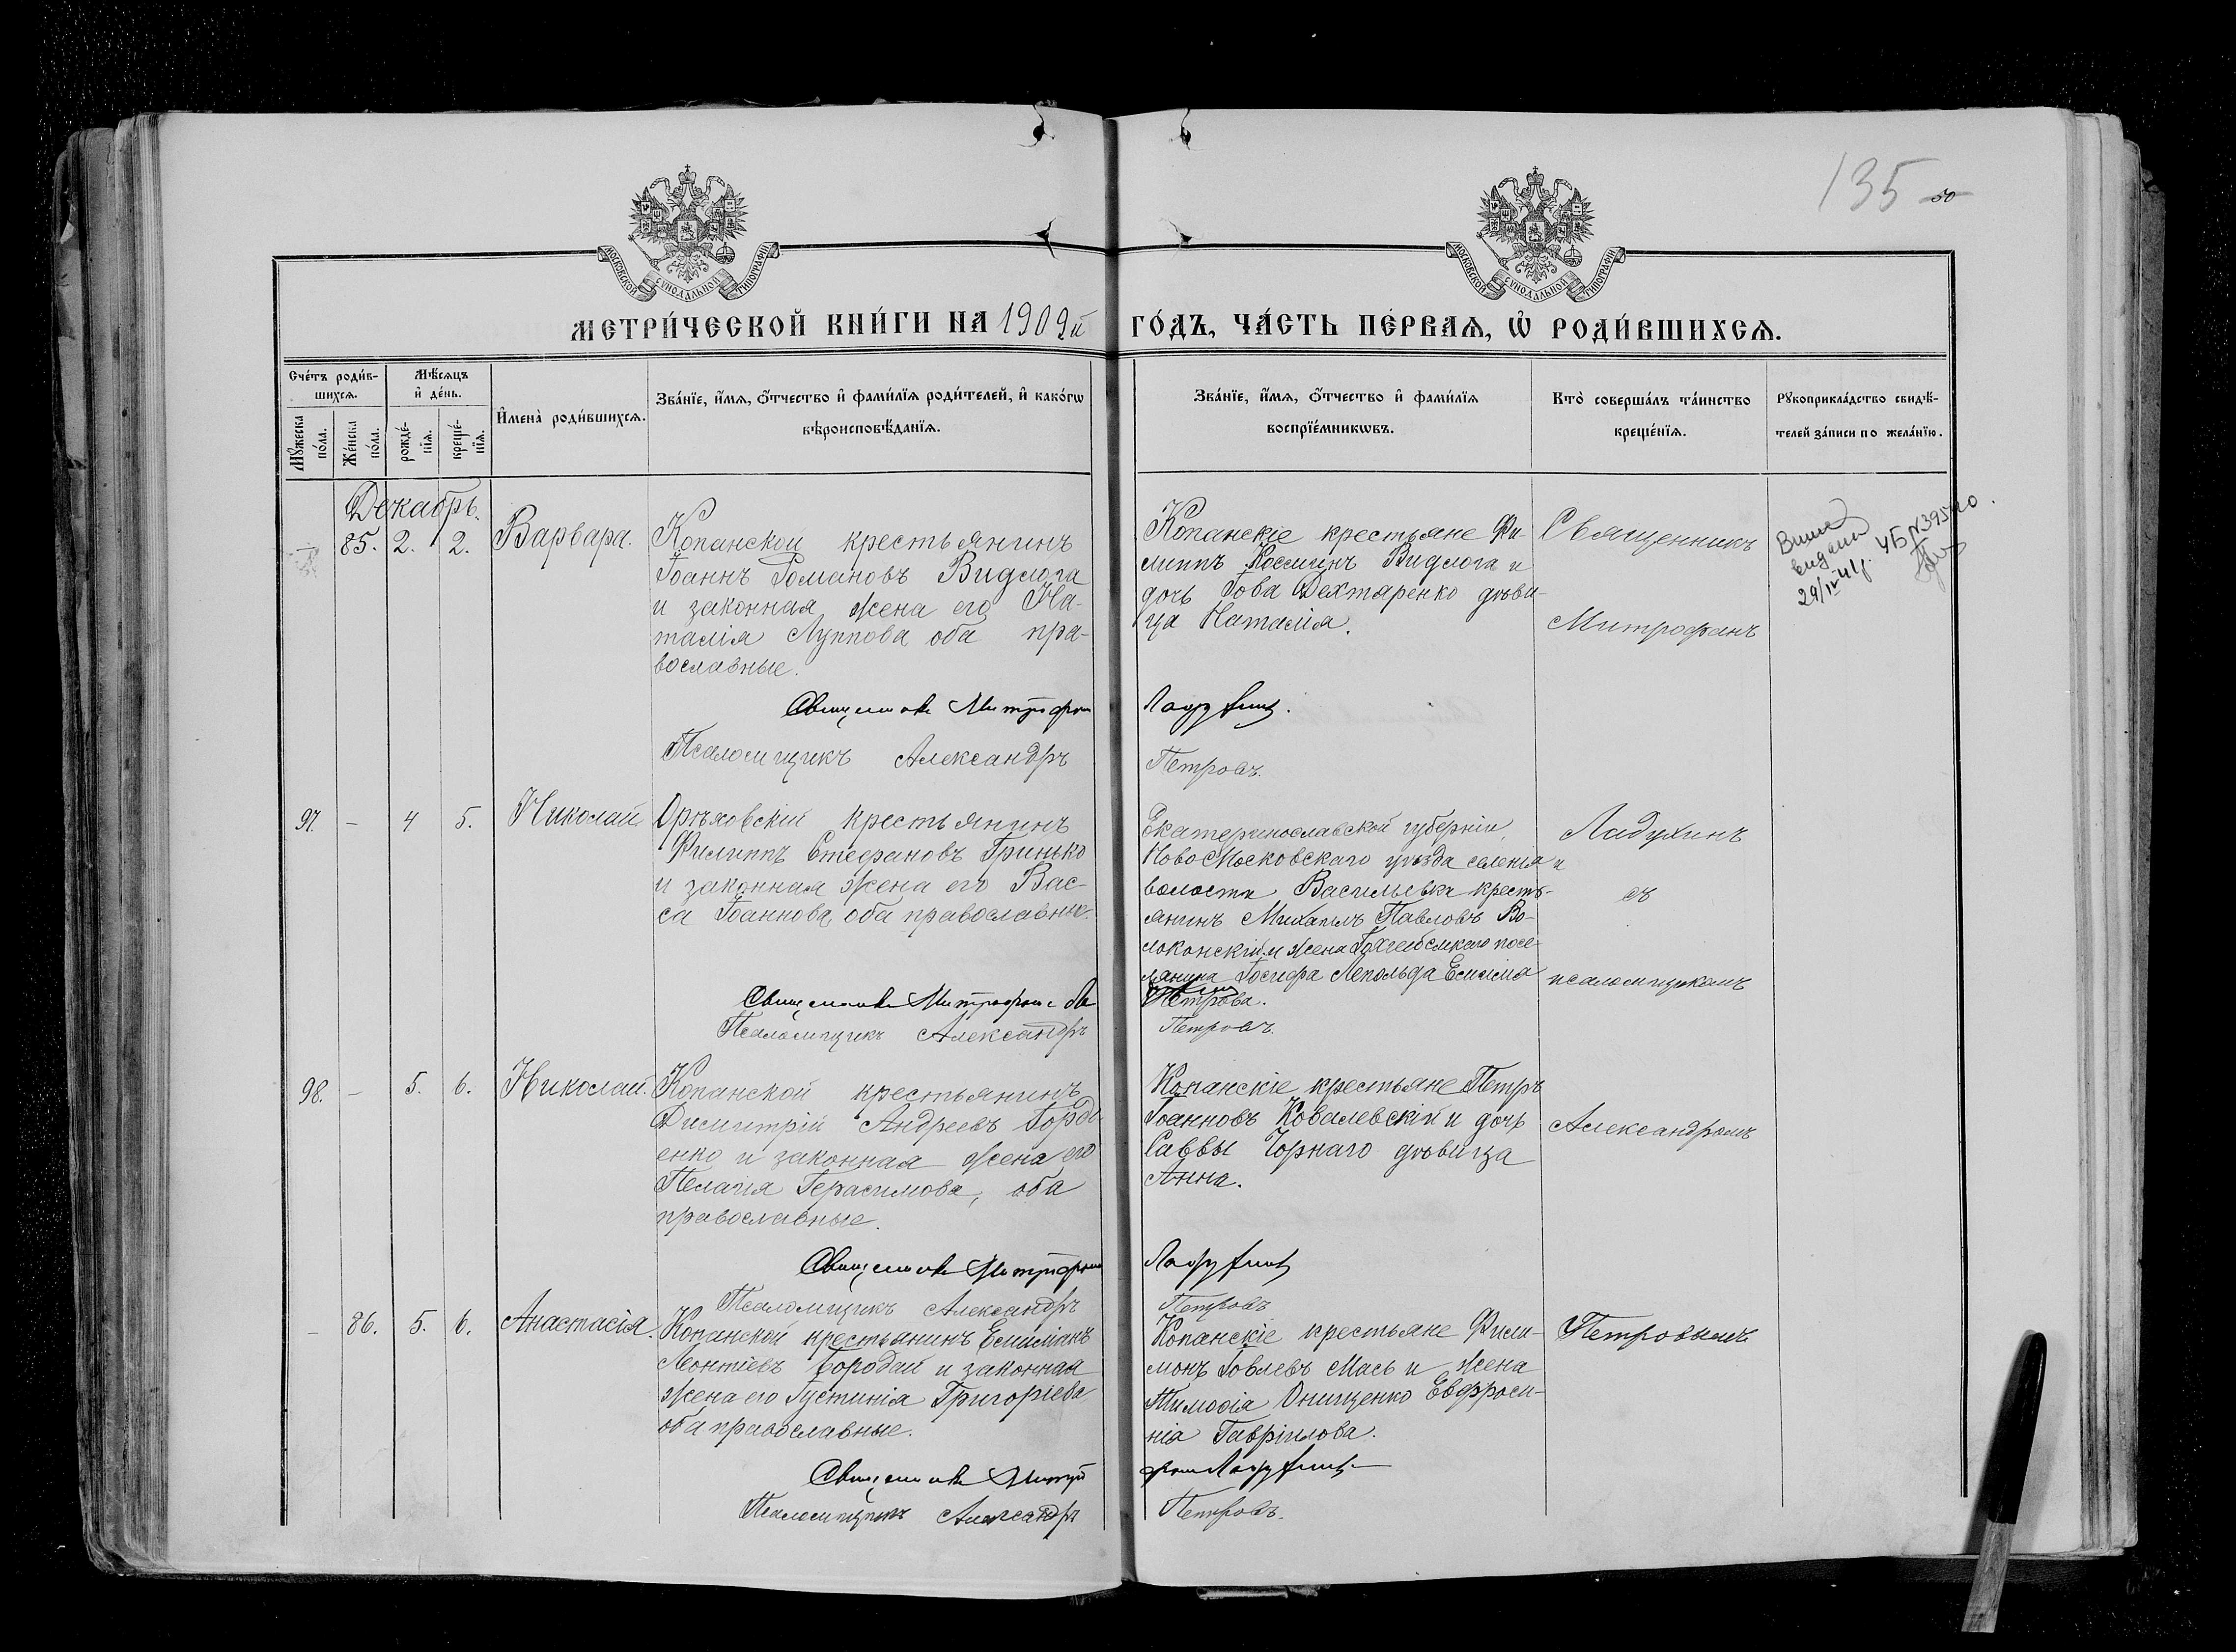 135 50
МОСКОВСКОЙ СѴНОДАЛЬНОЙ ТИПОГРАФІИ
МОСКОВСКОЙ СѴНОДАЛЬНОЙ ТИПОГРАФІИ
МЕТРИ́ЧЕСКОЙ КНИ́ГИ НА 1909й ГО́ДЪ, ЧА́СТЬ ПЕ́РВАѦ, Ѡ҆ РОДИ́ВШИХСѦ.
Сче́тъ роди́в-
шихсѧ.
Мѣ́сѧцъ
и҆ де́нь.
Мꙋ́жеска
по́ла.
Же́нска
по́ла.
рожде́-
нїѧ.
креще́-
нїѧ.
И҆мена̀ роди́вшихсѧ.
Зва́нїе, и҆́мѧ, ѻ҆́тчество и҆ фами́лїѧ роди́телей, и҆ како́гѡ
вѣроисповѣ́данїѧ.
Зва́нїе, и҆́мѧ, ѻ҆́тчество и҆ фами́лїѧ
воспрїе́мникѡвъ.
Кто̀ соверша́лъ та́инство
креще́нїѧ.
Рꙋкоприкла́дство свидѣ́-
телей за́писи по жела́нїю.
Декабрь.
— 85. 2. 2. Варвара.
Копанской крестьянинъ
Іоаннъ Романовъ Видлога
и законная жена его На-
талія Луппова оба пра-
вославные.
Священникъ Митрофан
Псаломщикъ Александръ
Копанскіе крестьяне Фи-
липпъ Космичъ Видлога и
дочь Іова Дехтяренко дѣви-
ца Наталія.
Ладухинъ.
Петровъ.
Священникъ
Митрофанъ
видана
29/IV 41 ЧБ №395720
97. — 4 5. Николай
Орѣховскій крестьянинъ
Филиппъ Стефановъ Гринько
и законная жена его Вас-
са Іоаннова, оба православные.
Священникъ Митрофанъ Ла
Псаломщикъ Александръ
Екатеринославской губерніи,
НовоМосковскаго уѣзда селенія и
волости Васильевки кресть-
янинъ Михаилъ Павловъ Во-
локонскій и жена
лянина Іосифа Лепольда Емилія
Петрова.
Петровъ.
Ладухинъ
съ
псаломщикомъ
98. — 5. 6. Николай.
Копанской крестьянинъ
Димитрій Андреевъ Горді-
енко и законная жена его
Пелагія Герасимова, оба
православные.
Священникъ Митрофан
Псаломщикъ Александръ
Копанскіе крестьяне Петръ
Іоанновъ Ковалевскій и дочь
Саввы Чорнаго дѣвица
Анна.
Ладухинъ
Петровъ
Александромъ
— 86. 5. 6. Анастасія.
Копанской крестьянинъ Емиліанъ
Леонтіевъ Бородай и законная
жена его Іустинія Григоріева
оба православные.
Священникъ Митро
Псаломщикъ Александръ
Копанскіе крестьяне Фили-
монъ Іовлевъ Мась и жена
Тимоѳія Онищенко Евфроси-
нія Гавріилова.
фанъ Ладухинъ
Петровъ.
Петровымъ